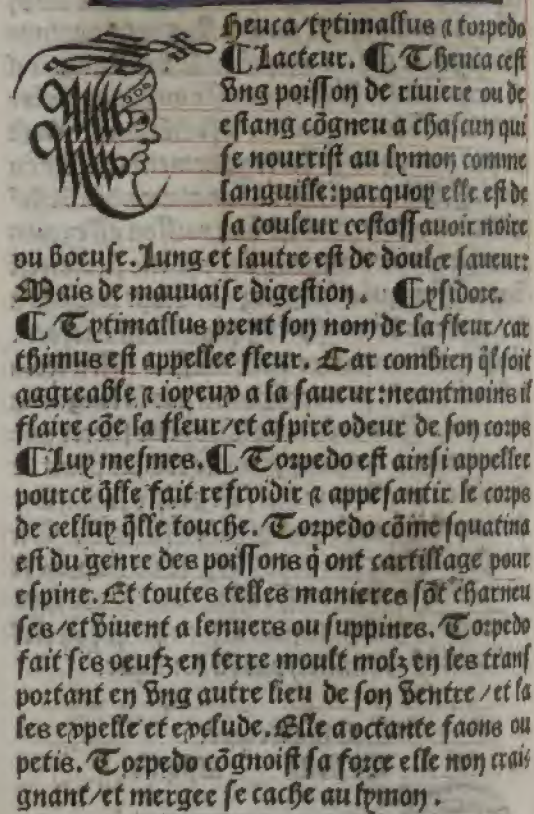 Heuca/tytimallus ⁊ torpedo
¶ Lacteur. ¶ Theuca cest
vng poisson de riuiere ou de
estang cõgneu a chascun qui
se nourrist au lymon comme
languille:parquoy elle est de
sa couleur cestassauoir noire
ou boeuse. Lung et lautre est de doulce saueur:
Mais de mauuaise digestion. ¶ ysidore.
¶ Tytimallus prent son nom de la fleur/car
thimus est appellee fleur. Car combien q̃l soit
aggreable ⁊ ioyeux a la saueur:neantmoins il
flaire cõe la fleur/et aspire odeur de son corps
¶ Luy mesmes. ¶ Torpedo est ainsi appellee
pource q̃lle fait refroidir ⁊ appesantir le corps
de celluy q̃lle touche. Torpedo cõme squatina
est du genre des poissons q̃ ont cartillage pour
espine. Et toutes telles manieres sõt charneu
ses/et viuent a lenuers ou suppines. Torpedo
fait ses oeufz en terre moult molz en les trans
portant en vng autre lieu de son ventre/et la
les expelle et exclude. Elle a octante faons ou
petis. Torpedo cõgnoist sa force elle non crai
gnant/et mergee se cache au lymon.